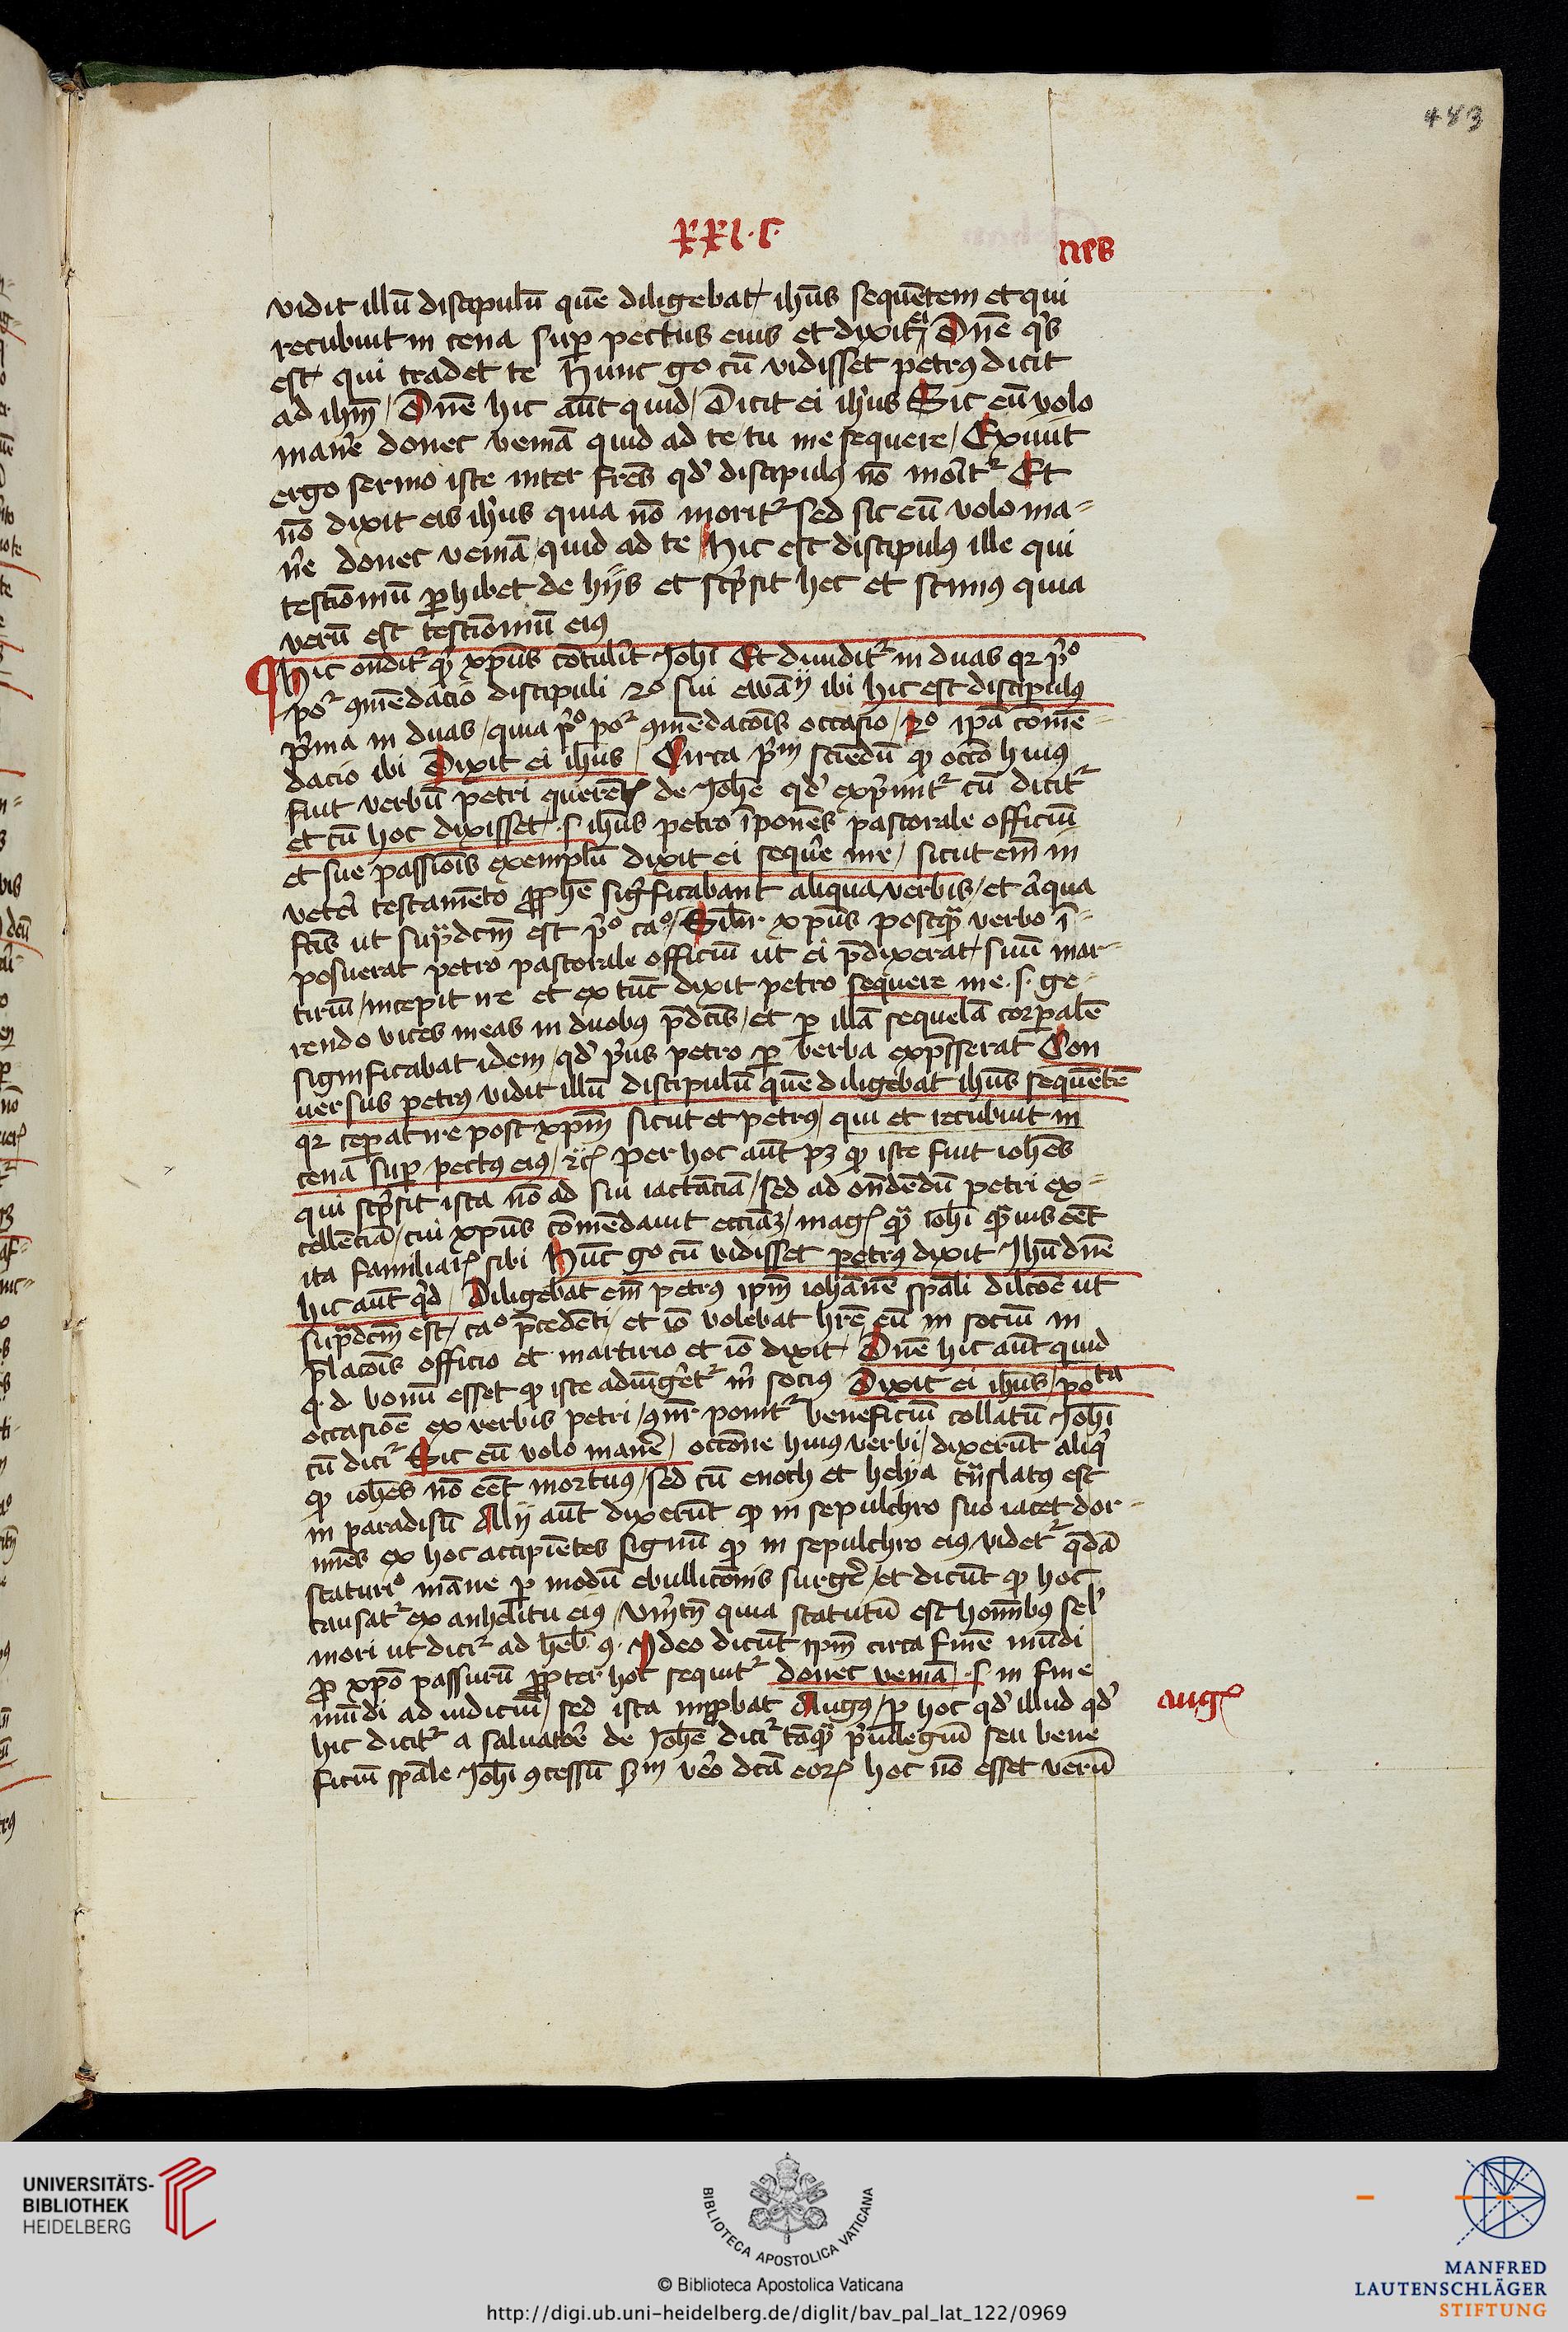 483
xxi · c ·
nes
vidit illū discipulū quē diligebat / ihūs sequētem et qui
recubuit in cena sup pectus eius et dixit Dnē qͥs
est qui tradet te Hunc go cū vidisset petrꝰ dicit
ad ihm̄ / Dnē hic aūt quid / Dicit ei ihūs Sic eū volo
manē donec veniā quid ad te / tu me sequere / Exiuit
ergo sermo iste inter fr̄es qd' discipulꝰ nō morīt Et
nō dixit eis ihūs quia nō morit sed sic eū volo ma-
nē donec veniā / quid ad te Hic est discipulꝰ ille qui
testīomū ꝑhibet de hijs et scpͥsit hec et scimꝰ quia
verū est testīomū eiꝰ
Hic ondit xpūs cōtulit Johī Et diuidit in duas qꝛ pͥo
po qmēdacio discipuli 2o sui ewāij ibi hic est discipulꝰ
pͥma in duas / quia pͥo po qmēdacōis occasio / 2o ipā comē-
dacio ibi Dixit ei ihūs / Circa pͥm sciēdū ꝙ occō huiꝰ
fuit verbū petri querētꝭ de Johē qd' expͥmit cū dicit
et cū hoc dixisset · s · ihūs petro īponēs pastorale officiū
et sue passiōis exemplū dixit ei sequē me / sicut em̄ in
vetēi testamēto ꝓphē significabant aliqua verbis / et aͥqua
fcīs ut supͣdcm̄ est pͥo cao / Silr xpūs postqͣ verbo ī-
posuerat petro pastorale officiū ut ei pͣdixerat / suū mar-
tiriū / incepit ire et ex tūc dixit petro sequere me · s · ge-
rendo vices meas in duobꝰ pͣdcīs / et ꝑ illā sequelā corpalē
significabat idem / qd' pͥus petro ꝑ verba expsserat Con
uersus petrꝰ vidit illū discipulū quē diligebat ihūs sequētē
qꝛ ceperat ire post xpm̄ sicut et petrꝰ / qui et recubuit in
cenā sup pectꝰ eiꝰ / ⁊cꝭ per hoc aūt pꝫ ꝙ iste fuit iohēs
qui scpͥsit ista nō ad sui iactāciā / sed ad ondēdū petri ex-
cellēciā / cui xpūs cōmēdauit ecciāꝫ / magꝭ qͣ iohī qͣuis eēt
ita familiarꝭ sibi Hūc go cū vidisset petrꝰ dixit Jhū dnē
hic aūt qͥd / Diligebat em̄ petrꝰ ipm̄ iohānē spāli dilcōe ut
supͣdcm̄ est / cao pͣcedēti / et iō volebat hrē eū in sociū in
pͣlacōis officio et martirio et iō dixit / Dnē hic aūt quid
q · d · bonū esset ꝙ iste adiūgēt mͥ sociꝰ Dixit ei ihūs / pota
occasiōe ex verbis petri / qnr ponit beneficiū collatū Johī
cū dicr Sic eū volo manē / occōne huiꝰ verbi / dixerūt aliqͥ
ꝙ iohēs nō eēt mortuꝰ / sed cū enoch et helya trīslatꝰ est
in paradisū Alij aūt dixerūt ꝙ in sepulchro suo iacet dor-
miēs ex hoc accipiētes signū ꝙ in sepulchro eiꝰ videt qͣdā
scaturio māne ꝑ modū ebullicōnis surgē / et dicūt ꝙ hoc
causat ex anhelitu eiꝰ / Vm̄tn̄ quia statutū est homībꝰ sel'
mori ut dicr ad heb · 9 · Ideo dicūt ipm̄ circa finē mūdi
ꝓ xpō passurū ꝓpter hoc sequit donec veniā · s · in fine
mūdi ad iudiciū / sed ista impͦbat Augꝰ / ꝑ hoc qd' illud qd'
hic dicit a saluatorē de Johē dicr tāqͣ pͥuilegiū seu bene
ficiū spāle Johī qcessū sꝫm vero dcā eoꝝ hoc nō esset verū
augꝭ
UNIVERSITÄTS-
BIBLIOTHEK
HEIDELBERG
BIBLIOTECA APOSTOLICA VATICANA
© Biblioteca Apostolica Vaticana
http://digi.ub.uni-heidelberg.de/diglit/bav_pal_lat_122/0969
MANFRED
LAUTENSCHLÄGER
STIFTUNG